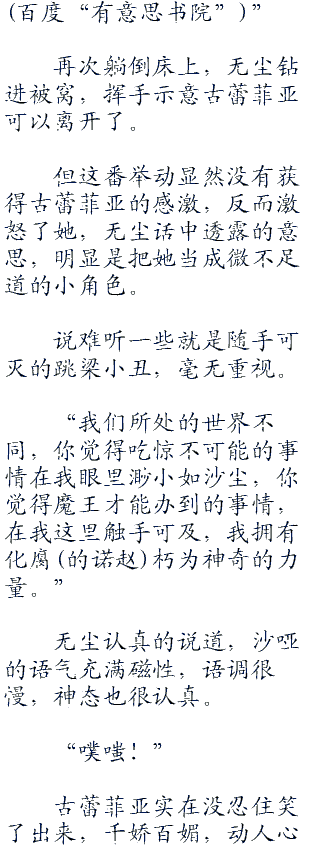 (百度“有意思书院”)”
再次躺倒床上，无尘钻
进被窝，挥手示意古蕾菲亚
可以离开了。
但这番举动显然没有获
得古蕾菲亚的感激，反而激
怒了她，无尘话中透露的意
思，明显是把她当成微不足
道的小角色。
说难听一些就是随手可
灭的跳梁小丑，毫无重视。
“我们所处的世界不
同，你觉得吃惊不可能的事
情在我眼里渺小如沙尘，你
觉得魔王才能办到的事情，
在我这里触手可及，我拥有
化腐(的诺赵)朽为神奇的力
量。”
无尘认真的说道，沙哑
的语气充满磁性，语调很
慢，神态也很认真。
“噗嗤！”
古蕾菲亚实在没忍住笑
了出来，千娇百媚，动人心